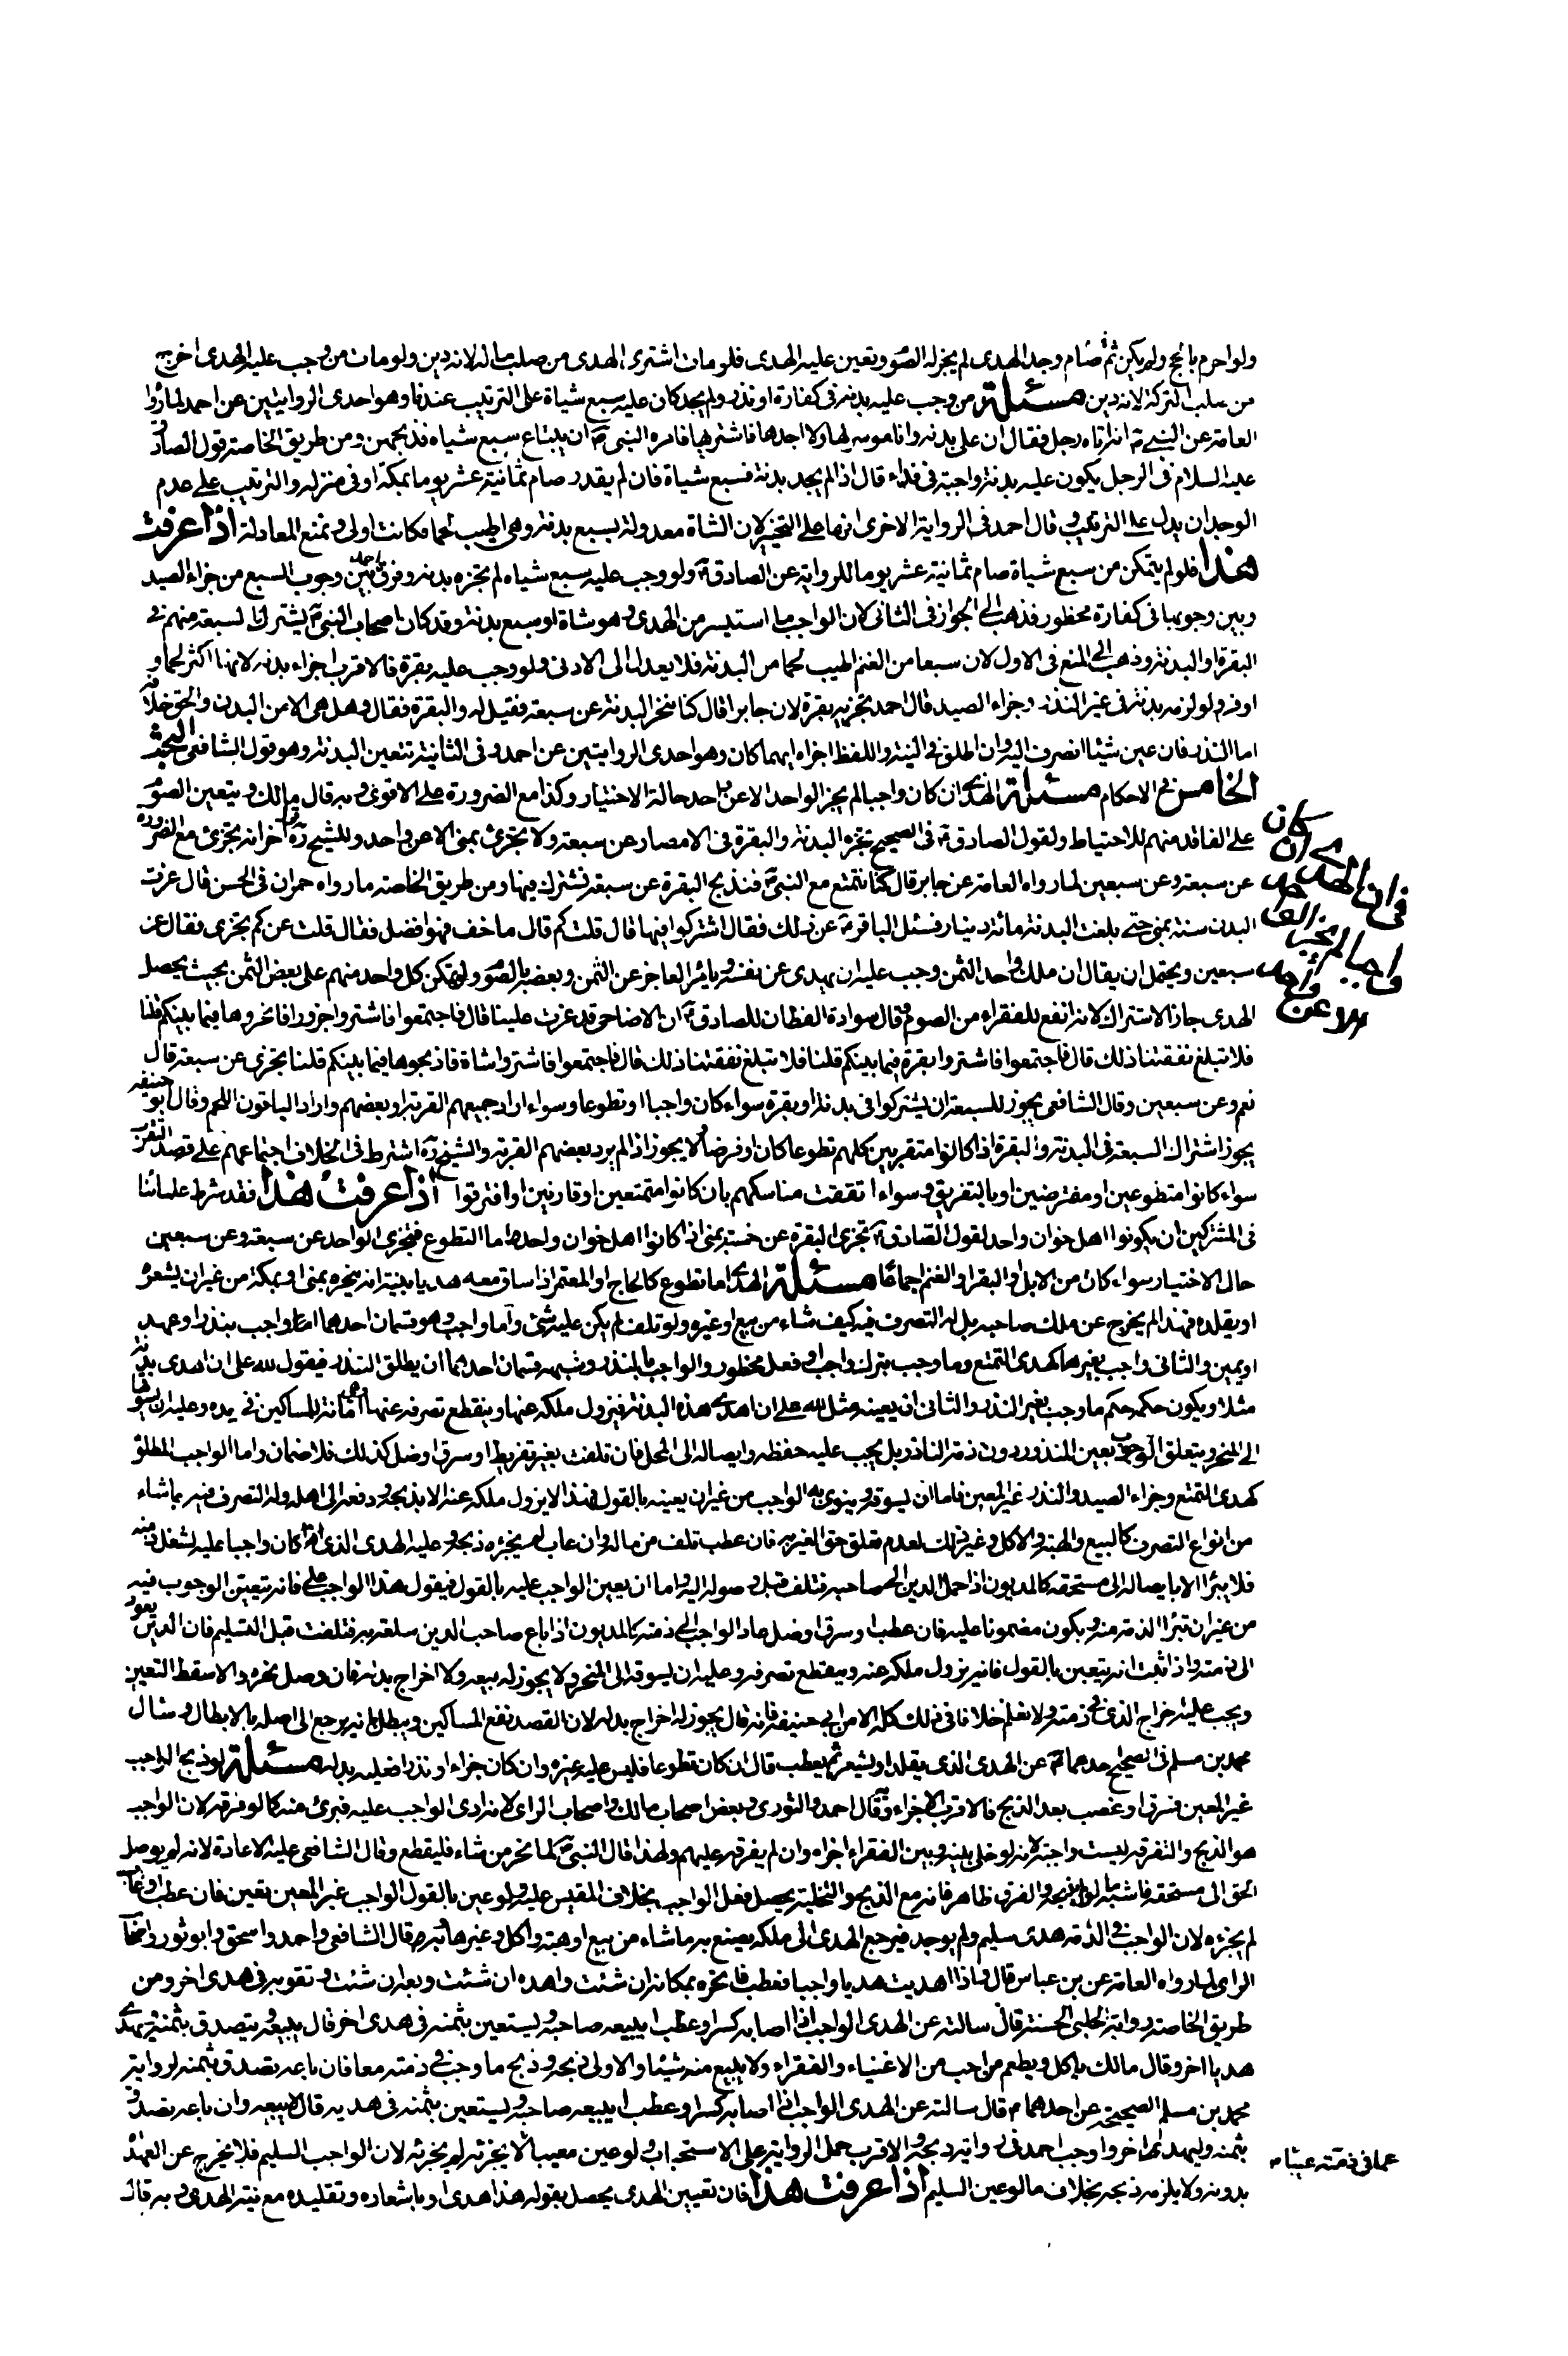 ولو احرم بالحج ولم يكن ثم صام وجد الهدى لم يجزله الصوم وتعين عليه الهدى فلو مات اشترى الهدى من صلب ماله لانه دين ولو مات من وجب عليه الهدى اخرج
من صلب التركة لانه دين مسئلة من وجب عليه بدنة فى كفارة او نذر ولم يجد كان عليه سبع شياة على الترتيب عندنا وهو احدى الروايتين عن احمد لما رواه
العامة عن النبى ص انه اتاه رجل فقال ان على بدنة وانا موسر لها ولا اجدها فاشتريها فامره النبى ص ان يبتاع سبع شياه فيذبحهن ومن طريق الخاصة قول الصادق
عليه السلام فى الرجل يكون عليه بدنة واجبة فى فداء قال اذا لم يجد بدنة فسبع شياة فان لم يقدر صام ثمانية عشر يوما بمكة او فى منزله والترتيب على عدم
الوجدان يدل على الترتيب وقال احمد فى الرواية الاخرى انها على التخيير لان الشاة معدولة بسبع بدنة وهى اطيب لحما فكانت اولى ويمنع المعادلة اذا عرفت
هذا فلو لم يتمكن من سبع شياة صام ثمانية عشر يوما للرواية عن الصادق ع ولو وجب عليه سبع شياه لم يجزه بدنة وفرق احمد بين وجوب السبع من جزاء الصيد
وبين وجوبها فى كفارة محظور فذهب الى الجواز فى الثانى لان الواجب ما استيسر من الهدى وهو شاة او سبع بدنة وقد كان اصحاب النبى ص يشترك السبعة منهم فى
البقرة او البدنة وذهب الى المنع فى الاول لان سبعا من الغنم اطيب لحما من البدنة فلا يعدل الى الادنى ولو وجب عليه بقرة فالاقرب اجزاء بدنة لانها اكثر لحما و
اوفر ولو لزمه بدنة فى غير النذر وجزاء الصيد قال احمد تجزيه بقرة لان جابرا قال كنا ننحر البدنة عن سبعة فقيل له والبقرة فقال وهل هى الا من البدن والحق خلافه
اما النذر فان عين شيئا انصرف اليه وان اطلق فى النية واللفظ اجزاه ايهما كان وهو احدى الروايتين عن احمد وفى الثانية تتعين البدنة وهو قول الشافعى البحث
الخامس فى الاحكام مسئلة الهدى ان كان واجبا لم يجز الواحد الا عن واحد حالة الاختيار وكذا مع الضرورة على الاقوى وبه قال مالك ويتعين الصوم
على الفاقد منهم للاحتياط ولقول الصادق ع فى الصحيح تجزء البدنة والبقرة فى الامصار عن سبعة ولا يجزئ بمنى الا عن واحد وللشيخ ره قول اخر انه يجزئ مع الضرورة
عن سبعة وعن سبعين لما رواه العامة عن جابر قال كنا نتمتع مع النبى ص فنذبح البقرة عن سبعة نشترك فيها ومن طريق الخاصة ما رواه حمران فى الحسن قال عزت
البدن سنة بمنى حتى بلغت البدنة مائة دينار فسئل الباقر ع عن ذلك فقال اشتركوا فيها قال قلت كم قال ما خف فهو افضل فقال قلت عن كم يجزى فقال عن
سبعين ويحتمل ان يقال ان ملك واحد الثمن وجب عليه ان يهدى عن نفسه ويامر العاجز عن الثمن وبعضه بالصوم ولو تمكن كل واحد منهم على بعض الثمن بحيث يحصل
الهدى جاز الاشتراك لانه انفع للفقراء من الصوم وقال سوادة القطان للصادق ع ان الاضاحى قد عزت علينا قال فاجتمعوا فاشتروا جزورا فانحروها فيما بينكم قلنا
فلا تبلغ نفقتنا ذلك قال فاجتمعوا فاشتروا بقرة فيما بينكم قلنا فلا تبلغ نفقتنا ذلك قال فاجتمعوا فاشتروا شاة فاذبحوها فيما بينكم قلنا تجزى عن سبعة قال
نعم وعن سبعين وقال الشافعى يجوز للسبعة ان يشتركوا فى بدنة او بقرة سواء كان واجبا او تطوعا وسواء اراد جميعهم القربة او بعضهم واراد الباقون اللحم وقال ابو حنيفة
يجوز اشتراك السبعة فى البدنة والبقرة اذا كانوا متقربين كلهم تطوعا كان او فرضا ولا يجوز اذا لم يرد بعضهم القربة والشيخ ره اشترط فى الخلاف اجتماعهم على قصد التقرب
سواء كانوا متطوعين او مفترضين او بالتفريق وسواء اتفقت مناسكهم بان كانوا متمتعين او قارنين او افترقوا اذا عرفت هذا فقد شرط علماؤنا
فى المشتركين ان يكونوا اهل خوان واحد لقول الصادق ع تجزى البقرة عن خمسة بمنى اذا كانوا اهل خوان واحد اما التطوع فيجزى الواحد عن سبعة وعن سبعين
حال الاختيار سواء كان من الابل او البقر او الغنم اجماعا مسئلة الهدى اما تطوع كالحاج او المعتمر اذا ساق معه هديا بنية انه ينحره بمنى او بمكة من غير ان يشعره
او يقلده فهذا لم يخرج عن ملك صاحبه بل له التصرف فيه كيف شاء من بيع او غيره ولو تلف لم يكن عليه شئ واما واجب وهو قسمان احدهما ما واجب بنذر او عهد
او يمين والثانى واجب بغيرها كهدى التمتع وما وجب بترك واجب او فعل محظور والواجب بالنذر وشبهه قسمان احدهما ان يطلق النذر فيقول لله على ان اهدى بدنة
مثلا ويكون حكمه حكم ما وجب بغير النذر والثانى ان يعينه مثل لله على ان اهدى هذه البدنة فيزول ملكه عنها وينقطع تصرفه عنها وهى امانة للمساكين فى يده وعليه ان يسوقها
الى المنحر ويتعلق الوجوب بعين المنذور دون ذمة الناذر بل يجب عليه حفظه وايصاله الى المحل فان تلفت بغير تفريط او سرق او ضل كذلك فلا ضمان واما الواجب المطلق
كهدى التمتع وجزاء الصيد والنذر غير المعين فاما ان يسوقه وينوى به الواجب من غير ان يعينه بالقول فهذا لا يزول ملكه عنه الا بذبحه ودفعه الى اهله وله التصرف فيه بما شاء
من انواع التصرف كالبيع والهبة والاكل وغير ذلك لعدم تعلق حق الغير به فان عطب تلف من ماله وان عاب لم يجزه ذبحه وعليه الهدى الذى كان واجبا عليه لشغل ذمته
فلا يبرأ الا بايصاله الى مستحقه كالمديون اذا حمل الدين الى صاحبه فتلف قبل وصوله اليه واما ان يعين الواجب عليه بالقول فيقول هذا الواجب على فانه يتعين الوجوب فيه
من غير ان تبرأ الذمة منه ويكون مضمونا عليه فان عطب او سرق او ضل عاد الواجب الى ذمته كالمديون اذا باع صاحب الدين سلعة به فتلفت قبل التسليم فان الدين يعود
الى ذمته واذا ثبت انه يتعين بالقول فانه يزول ملكه عنه وينقطع تصرفه وعليه ان يسوقه الى المنحر ولا يجوز له بيعه ولا اخراج بدله فان وصل نحره والا سقط التعيين
ويجب عليه اخراج الذى فى ذمته ولا نعلم خلافا فى ذلك كله الا من ابى حنيفة فانه قال يجوز له اخراج بدله لان القصد نفع المساكين ويبطل بانه يرجع الى اصله بالابطال وسال
محمد بن مسلم فى الصحيح احدهما ع عن الهدى الذى يقلد او يشعر ثم يعطب قال ان كان تطوعا فليس عليه غيره وان كان جزاء او نذرا فعليه بدله مسئلة لو ذبح الواجب
غير المعين فسرق او غصب بعد الذبح فالاقرب الاجزاء وبه قال احمد والثورى وبعض اصحاب مالك واصحاب الراى لانه ادى الواجب عليه فبرئ منه كما لو فرقه لان الواجب
هو الذبح والتفرقة ليست واجبة لانه لو خلى بينه وبين الفقراء اجزاه وان لم يفرقه عليهم ولهذا قال النبى ص لما نحر من شاء فليقطع وقال الشافعى عليه الاعادة لانه لم يوصل
الحق الى مستحقه فاشبه ما لو لم يذبحه والفرق ظاهر فانه مع الذبح والتخلية يحصل فعل الواجب بخلاف المقيس عليه ولو عين بالقول الواجب غير المعين تعين فان عطب او عاب
لم يجزه لان الواجب فى الذمة هدى سليم ولم يوجد فيرجع الهدى الى ملكه يصنع به ما شاء من بيع او هبة واكل وغيرها وبه قال الشافعى واحمد واسحق وابو ثور واصحاب
الراى لما رواه العامة عن بن عباس قال واذا اهديت هديا واجبا فعطب فانحره بمكانه ان شئت واهده ان شئت وبعه ان شئت وتقو به فى هدى اخر ومن
طريق الخاصة رواية الحلبى الحسنة قال سالته عن الهدى الواجب اذا اصابه كسر او عطب ايبيعه صاحبه ويستعين بثمنه فى هدى اخر قال يبيعه ويتصدق بثمنه ويهدى
هديا اخر وقال مالك ياكل ويطعم من احب من الاغنياء والفقراء ولا يبيع منه شيئا والاولى ذبحه وذبح ما وجب فى ذمته معا فان باعه تصدق بثمنه لرواية
محمد بن مسلم الصحيحة عن احدهما ع قال سالته عن الهدى الواجب اذا اصابه كسر او عطب ايبيعه صاحبه ويستعين بثمنه فى هديه قال لا يبيعه وان باعه تصدق
بثمنه وليهد هديا اخر واوجب احمد فى رواية ذبحه والاقرب حمل الرواية على الاستحباب ولو عين معيبا لا يجزئه لم يجزئه لان الواجب السليم فلا يخرج عن العهدة
بدونه ولا يلزمه ذبحه بخلاف ما لو عين السليم اذا عرفت هذا فان تعيين الهدى يحصل بقوله هذا هدى او باشعاره وتقليده مع نية الهدى وبه قال
فى ان الهدى ان كان
واجبا لم يجز الواحد
الا عن واحد
عما فى ذمته عينا